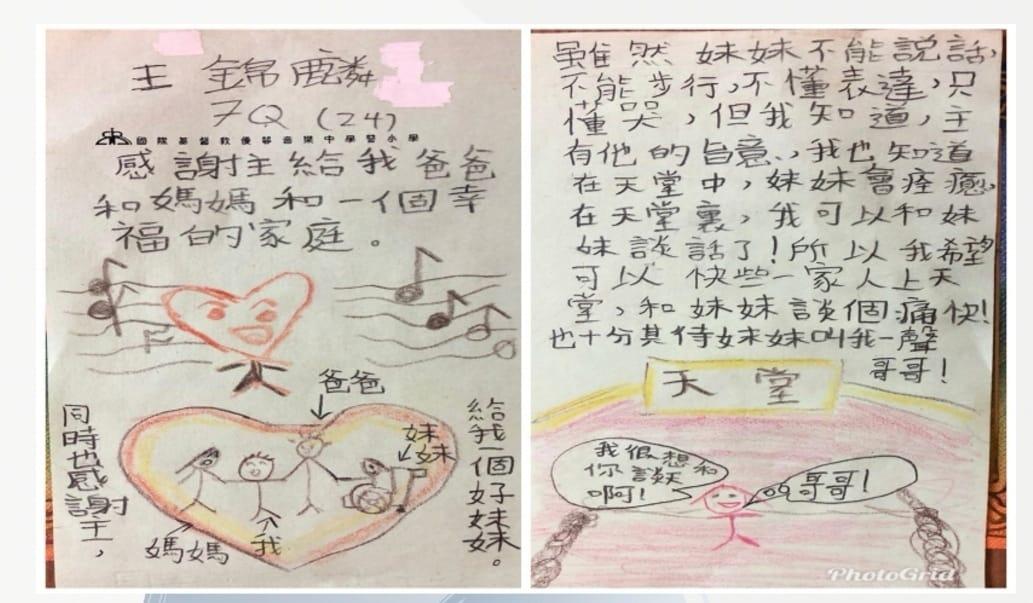 王 錦麟
7Q (24)
國際基督教優質音樂中學暨小學
感謝主給我爸爸
和媽媽和一個幸
福的家庭。
爸爸
妹妹
媽媽
我
同時也感謝主,
給我一個好妹妹。
雖然妹妹不能說話,
不能步行,不懂表達,只
懂哭,但我知道,主
有他的旨意,我也知道
在天堂中,妹妹會痊癒,
在天堂裏,我可以和妹
妹談話了!所以我希望
可以快些一家人上天
堂,和妹妹談個痛快!
也十分其待妹妹叫我一聲
哥哥!
天堂
我很想和
你談天
啊!
哥哥!
PhotoGrid